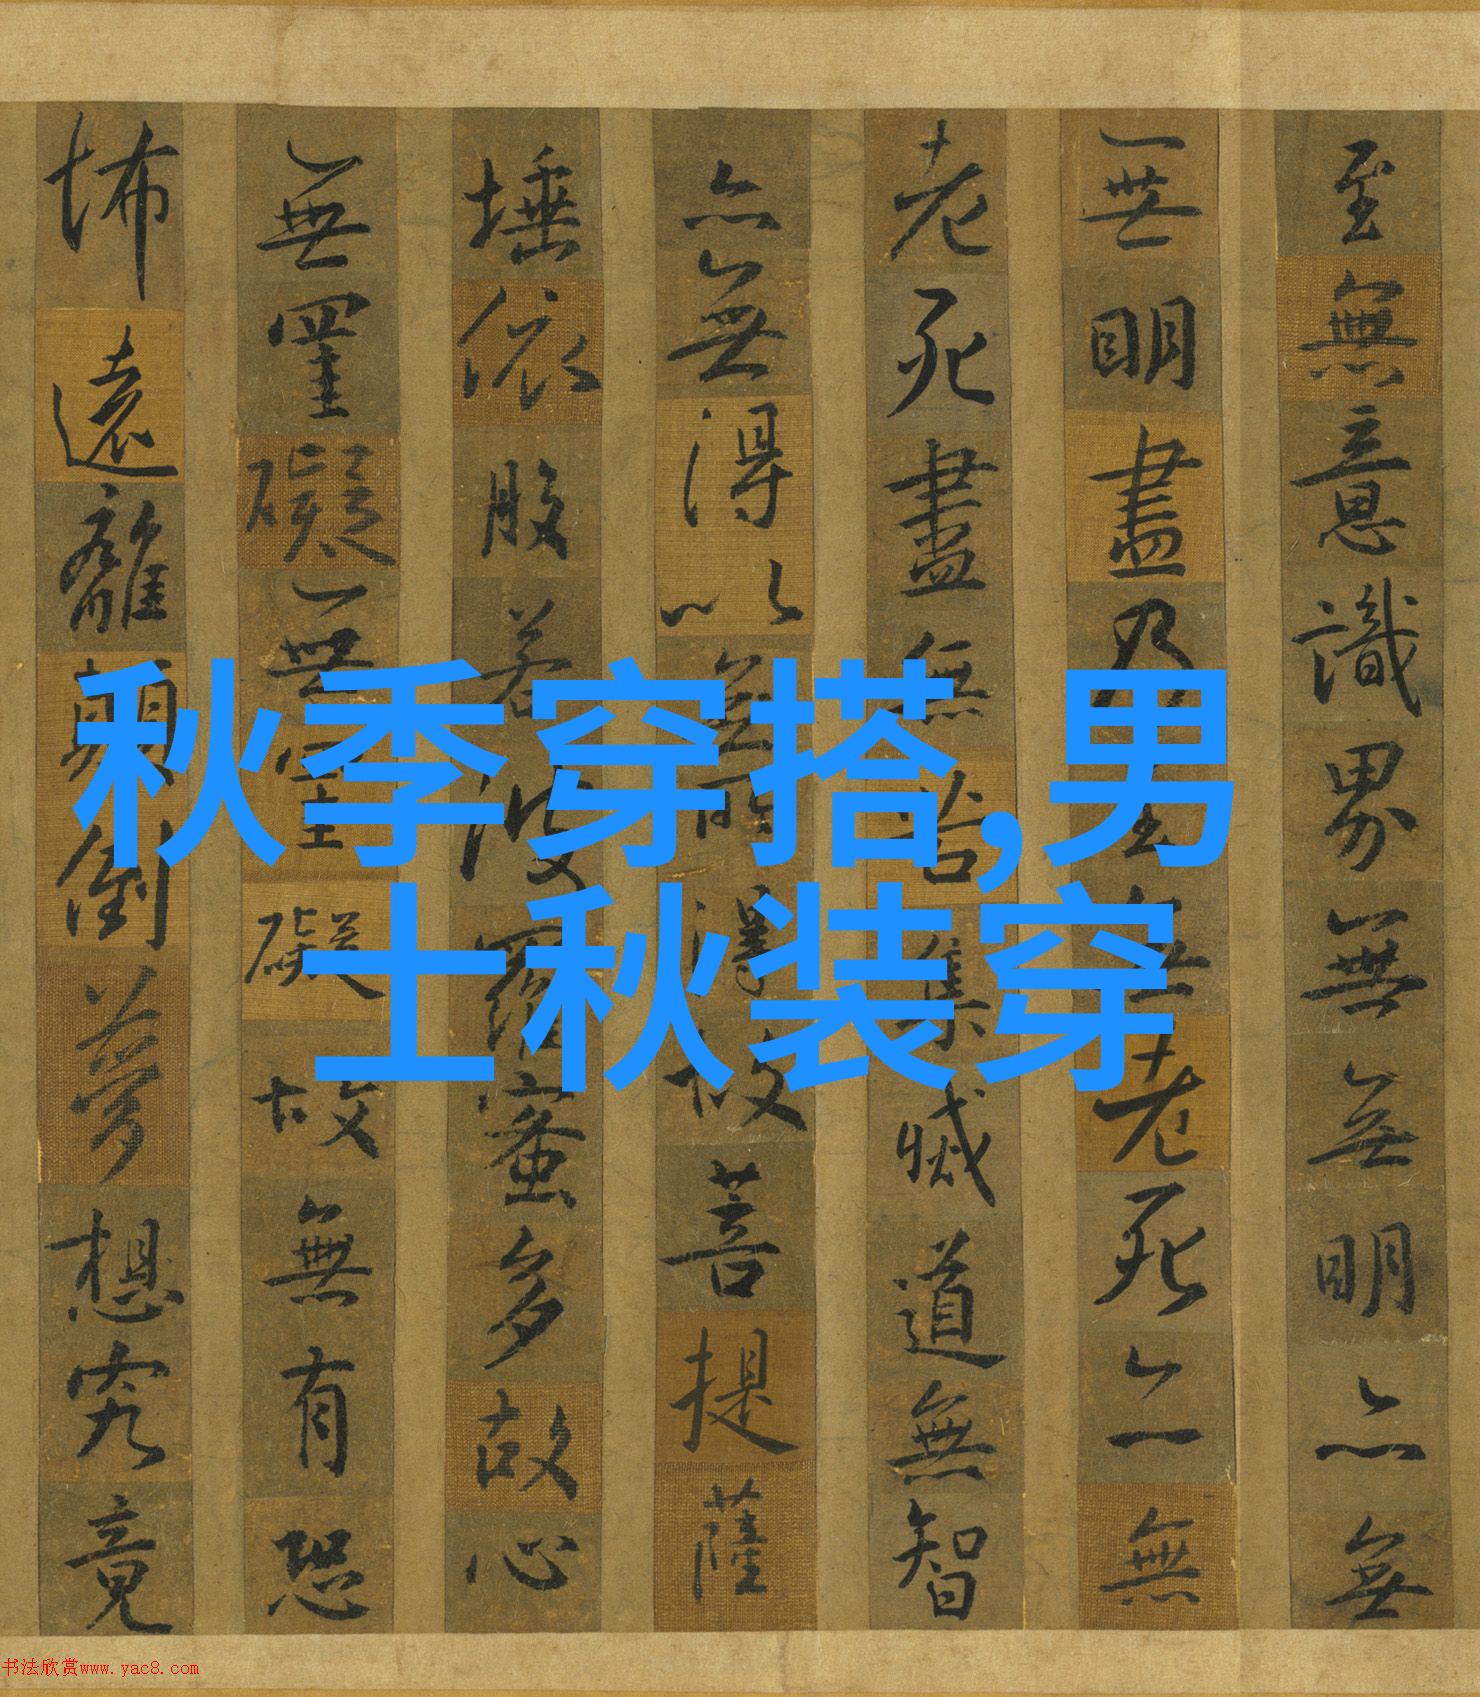 至無意識界無無明亦無
無明盡乃至無老死亦無
老死盡無苦集滅道無智
亦無得以無所得故菩提薩
埵依般若波羅蜜多故心
無罣礙無罣礙故無有恐
怖遠離顛倒夢想究竟
秋季穿搭,男
士秋装穿
书法欣赏www.yac8.com